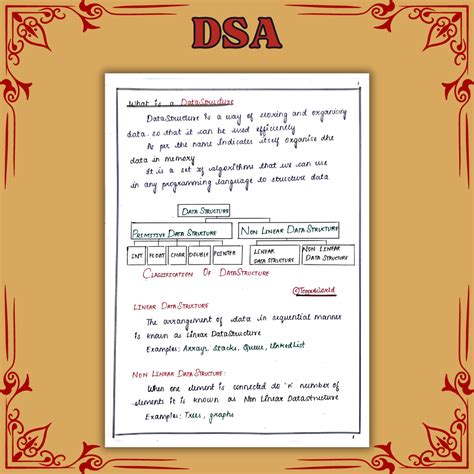 DSA
What is a DataStructure
DataStructure is a way of storing and organising
data so that it can be used efficiently
As per the name Indicates itself organise the
data in memory
It is a set of algorithms that we can use
in any programming language to structure data
DATA STRUCTURE
PRIMITIVE DATA STRUCTURE
NON LINEAR DATA STRUCTURE
INT FLOAT CHAR DOUBLE POINTER
LINEAR DATA STRUCTURE
NON LINEAR DATA STRUCTURE
CLASSIFICATION OF DATASTRUCTURE
LINEAR DATASTRUCTURE
The arrangement of data in sequential manner
is known as Linear DataStructure
Examples: Arrays, Stacks, Queue, LinkedList
NON LINEAR DATASTRUCTURE:
When one element is connected do 'n' number of
elements it is known as Non Linear Datastructure
Examples: Trees, graphs